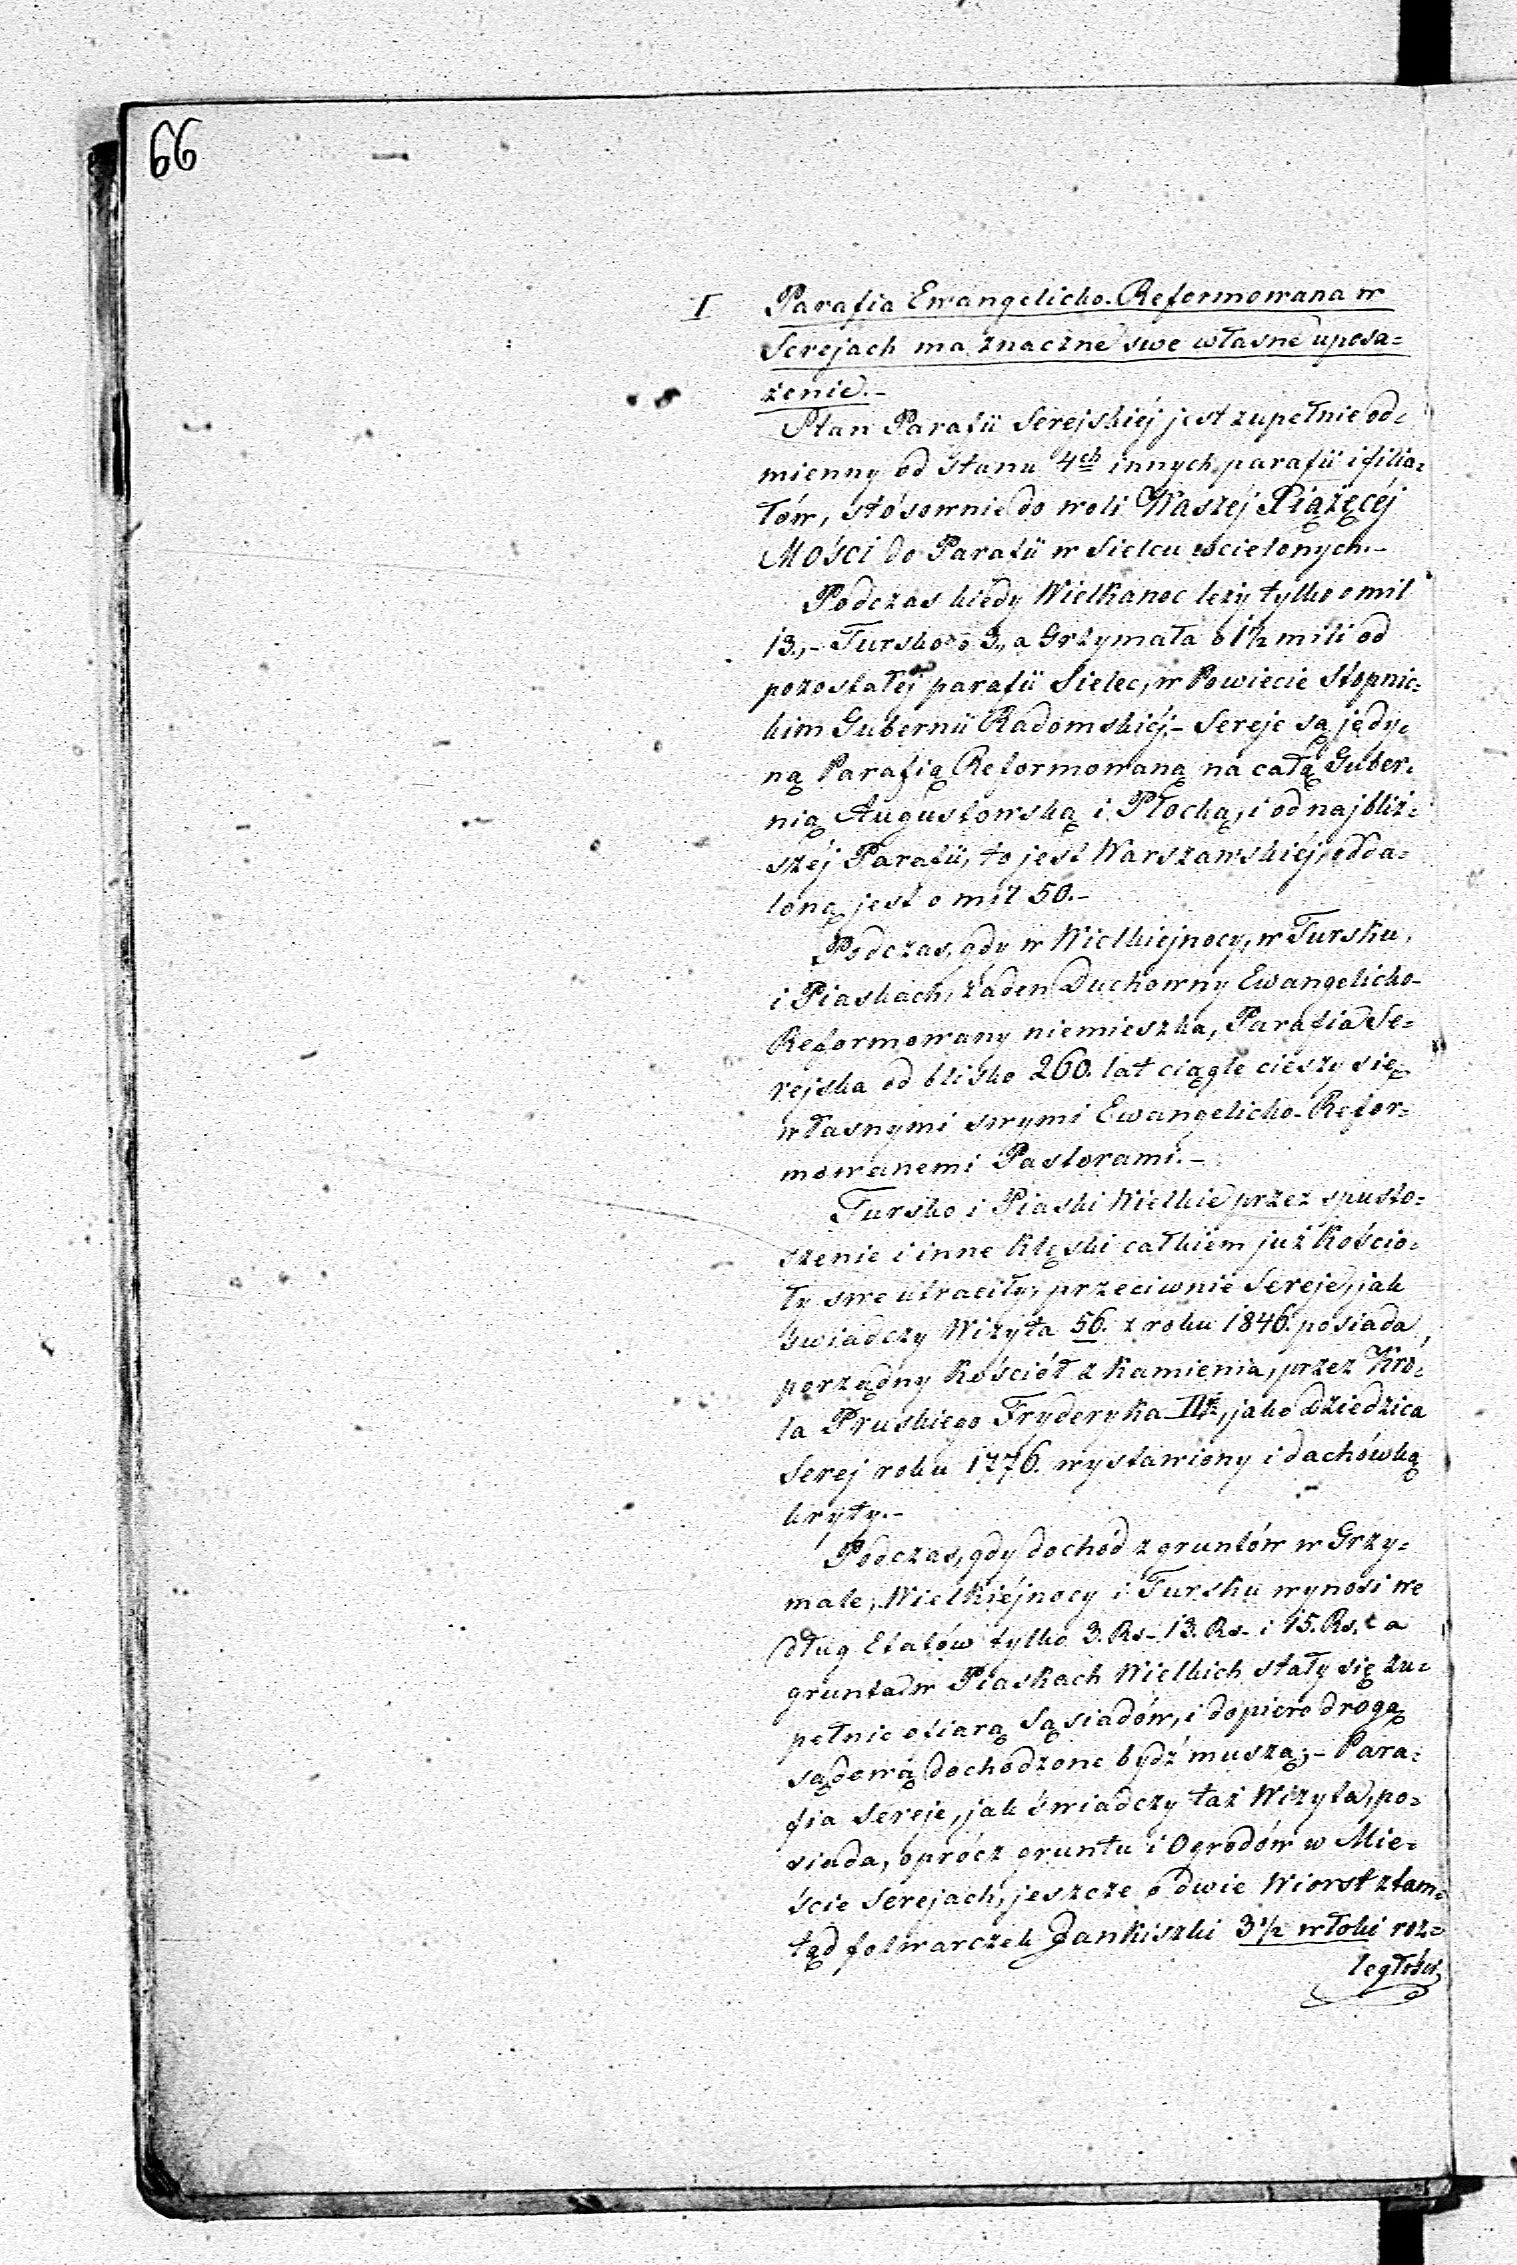 66
I Parafia Ewangelicko-Reformowana w
Serejach ma znaczne swe własne uposa=
żenie.-
Stan Parafii Serejskiéj jest zupełnie od=
mienny od stanu 4ch innych parafii i filia=
łów, stósownie do woli Waszéj Xiążęcéj
Mości do Parafii w Sielcu wcielonych.-
Podczas kiedy Wielkanoc leży tylko o mil
13,- Tursko o 3, a Grzymała o 1½ mili od
pozostałej parafii Sielec, w Powiecie Stopnic=
kim Gubernii Radomskiéj,- Sereje są jedy=
ną Parafią Reformowaną na całą Guber=
nią Augustowską i Płocką, i od najbliż=
széj Parafii, to jest Warszawskiéj, odda=
loną jest o mil 50.-
Podczas, gdy w Wielkiejnocy, w Tursku,
i Piaskach, żaden Duchowny Ewangelicko-
Reformowany niemieszka, Parafia Se=
rejska od blisko 260. lat ciągle cieszy się
własnymi swymi Ewangelicko-Refor=
mowanemi Pastorami.-
Tursko i Piaski Wielkie przez spusto=
szenie i inne klęski całkiem już Kościo=
ły swe utraciły, przeciwnie Sereje, jak
świadczy Wizyta 56. z roku 1846. posiada
porządny Kościół z Kamienia, przez Kró=
la Pruskiego Fryderyka II, jako dziedzica
Serej roku 1776. wystawiony i dachówką
kryty.-
Podczas, gdy dochód z gruntów w Grzy=
male, Wielkiéjnocy i Tursku wynosi we
dług Etatów tylko 3. Rs- 13. Rs- i 15. Rs, a
grunta w Piaskach Wielkich stały się zu=
pełnie ofiarą Sąsiadów, i dopiero drogą
sądową dochodzone bydź muszą;- Para=
fia Sereje, jak świadczy taż Wizyta, po=
siada, oprócz gruntu i Ogrodów w Mie=
ście Serejach, jeszcze o dwie Wiorst ztam=
tąd folwarczek Jankiszki 3½ włoki roz=
ległości